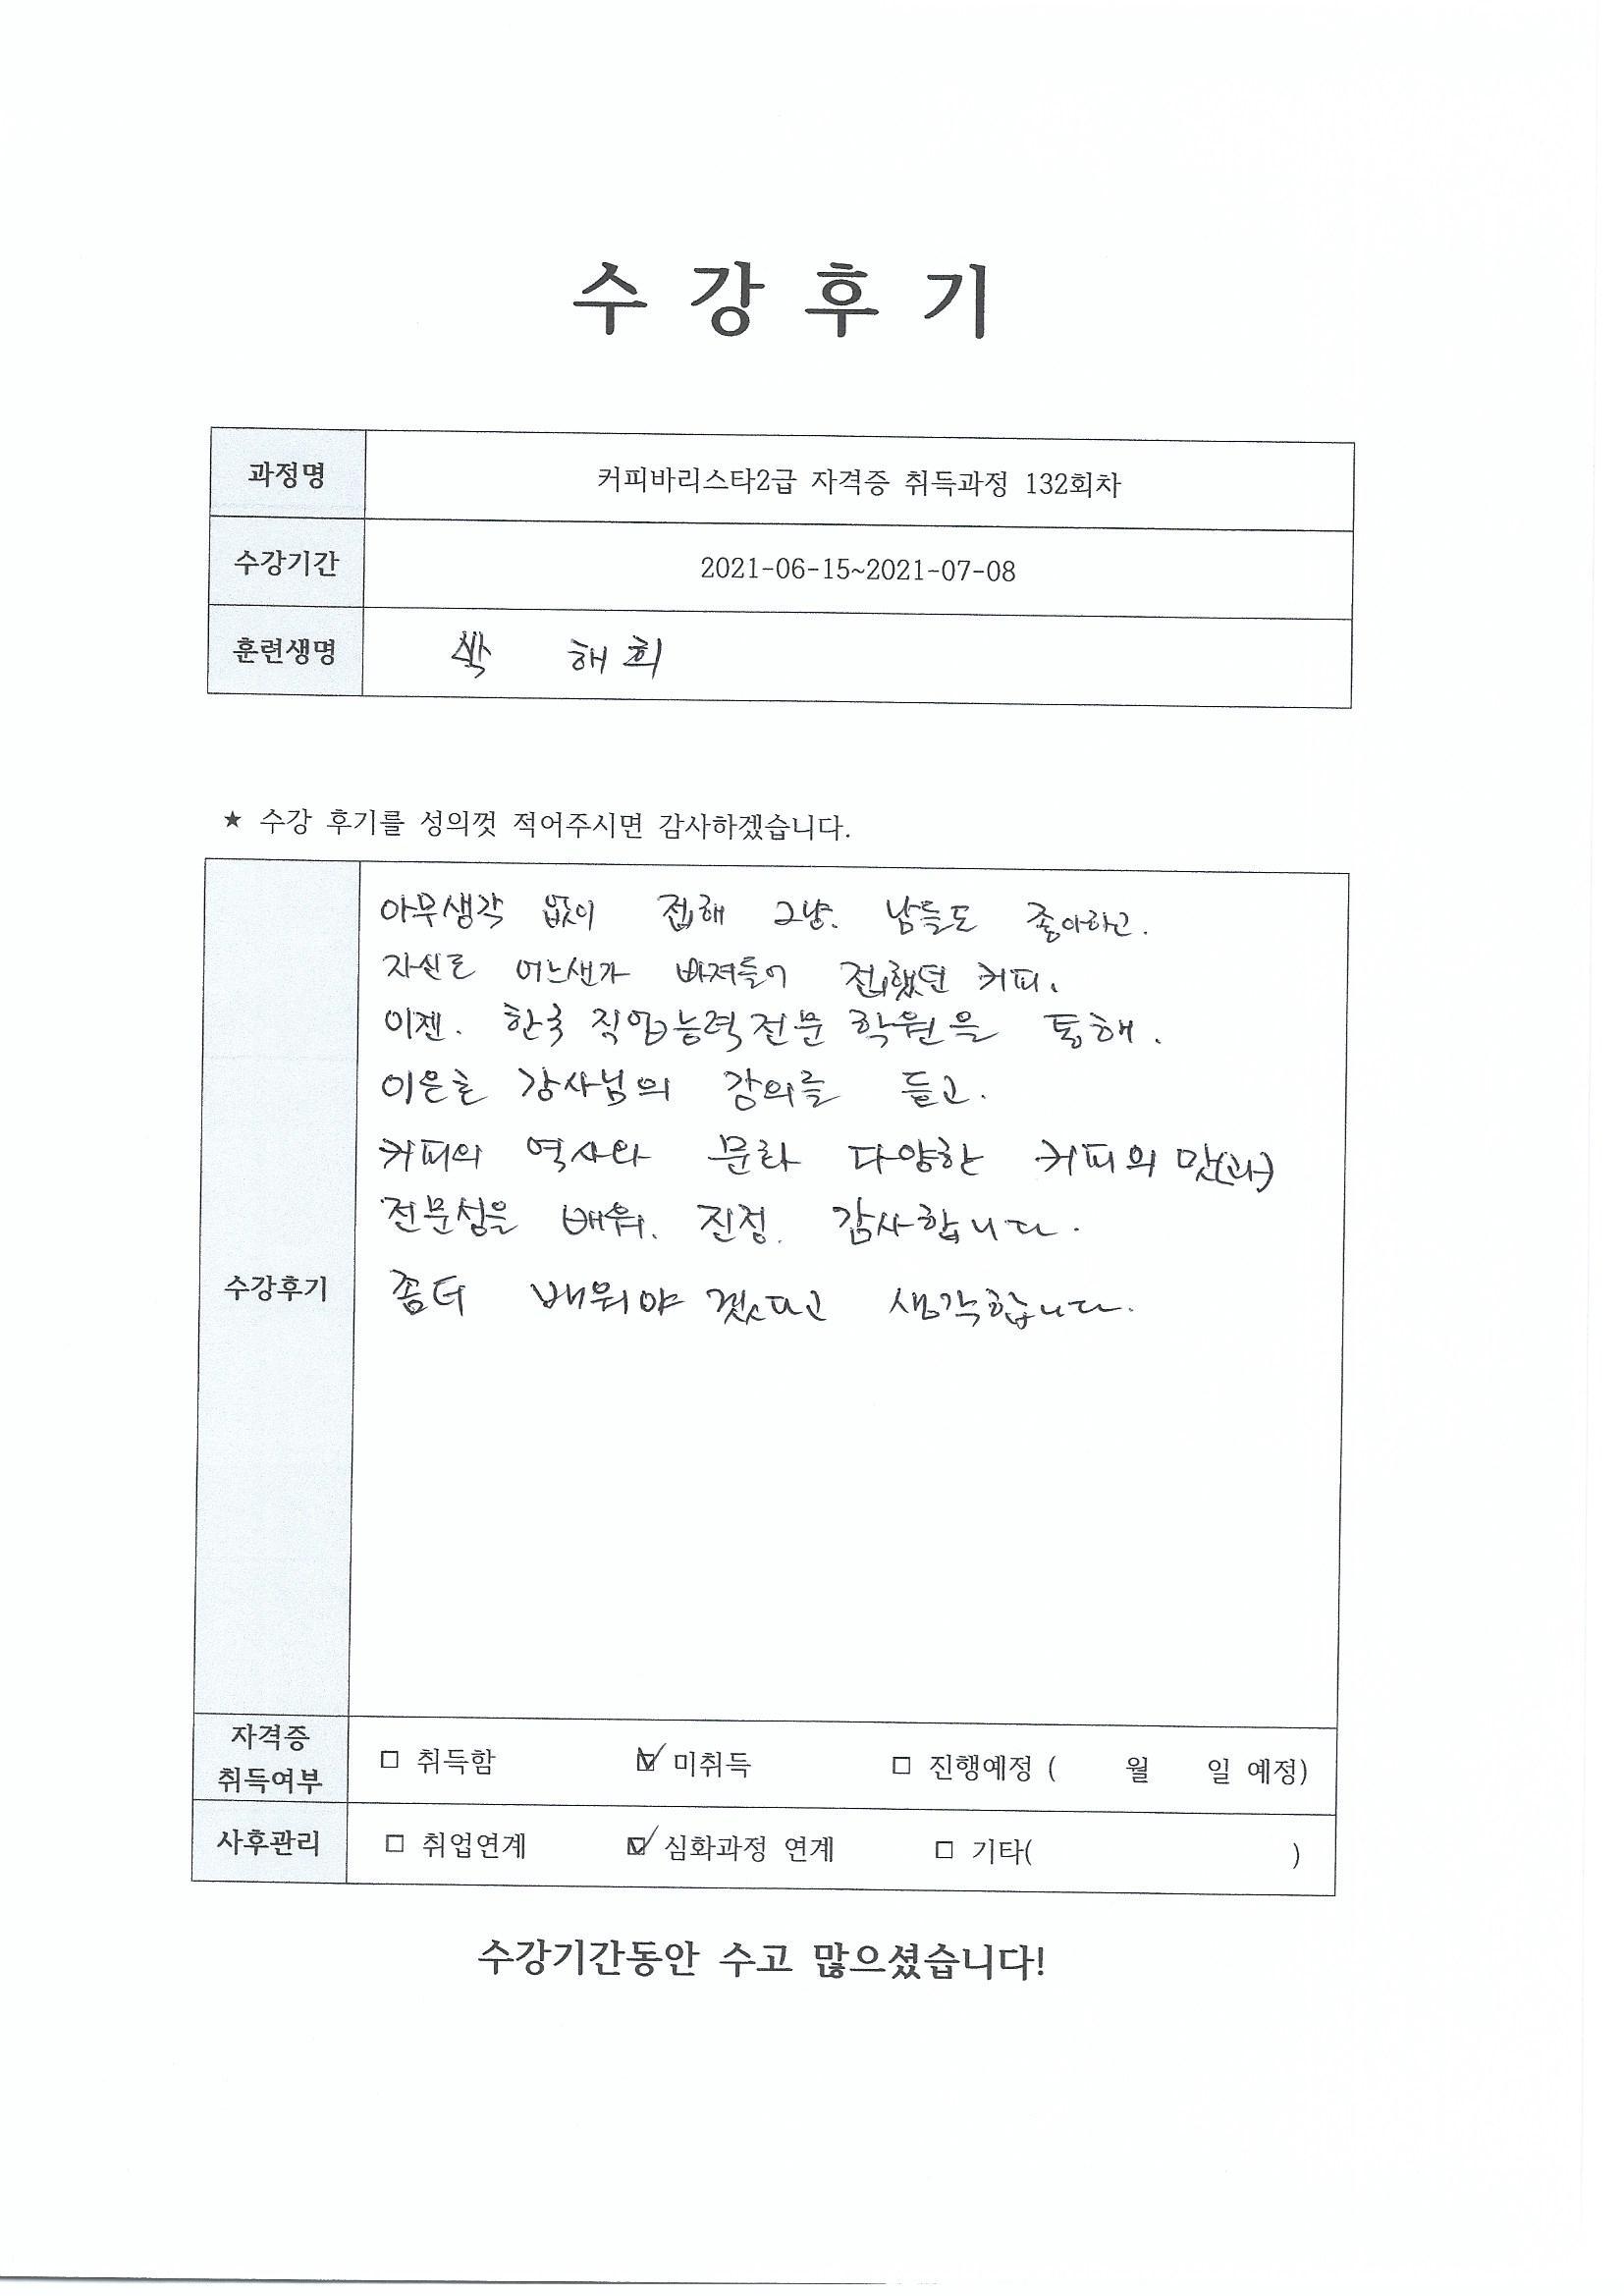 수강후기
과정명 커피바리스타2급 자격증 취득과정 132회차
수강기간 2021-06-15~2021-07-08
훈련생명 박 해희
★ 수강 후기를 성의껏 적어주시면 감사하겠습니다.
수강후기
아무생각 없이 접해 그냥. 남들도 좋아하고.
자신도 어느샌가 빠져들어 접했던 커피.
이젠. 한국 직업능력전문 학원을 통해.
강사님의 강의를 듣고.
커피의 역사와 문화 다양한 커피의 맛(과)
전문성을 배워. 진정. 감사합니다.
좀더 배워야 겠다고 생각합니다.
자격증 취득여부 □ 취득함 ☑ 미취득 □ 진행예정 ( 월 일 예정)
사후관리 □ 취업연계 ☑ 심화과정 연계 □ 기타( )
수강기간동안 수고 많으셨습니다!